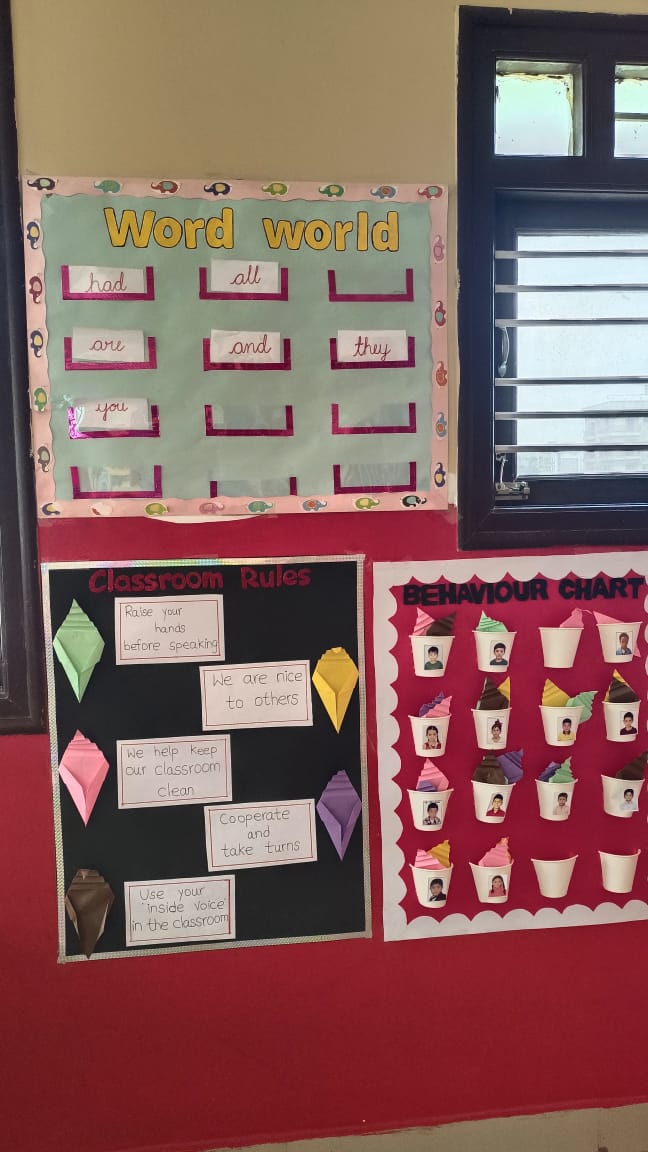 Word world
had all
are and they
you
Classroom Rules
Raise your
hands
before speaking
We are nice
to others
We help keep
our classroom
clean
Cooperate
and
take turns
Use your
'inside voice'
in the classroom
BEHAVIOUR CHART